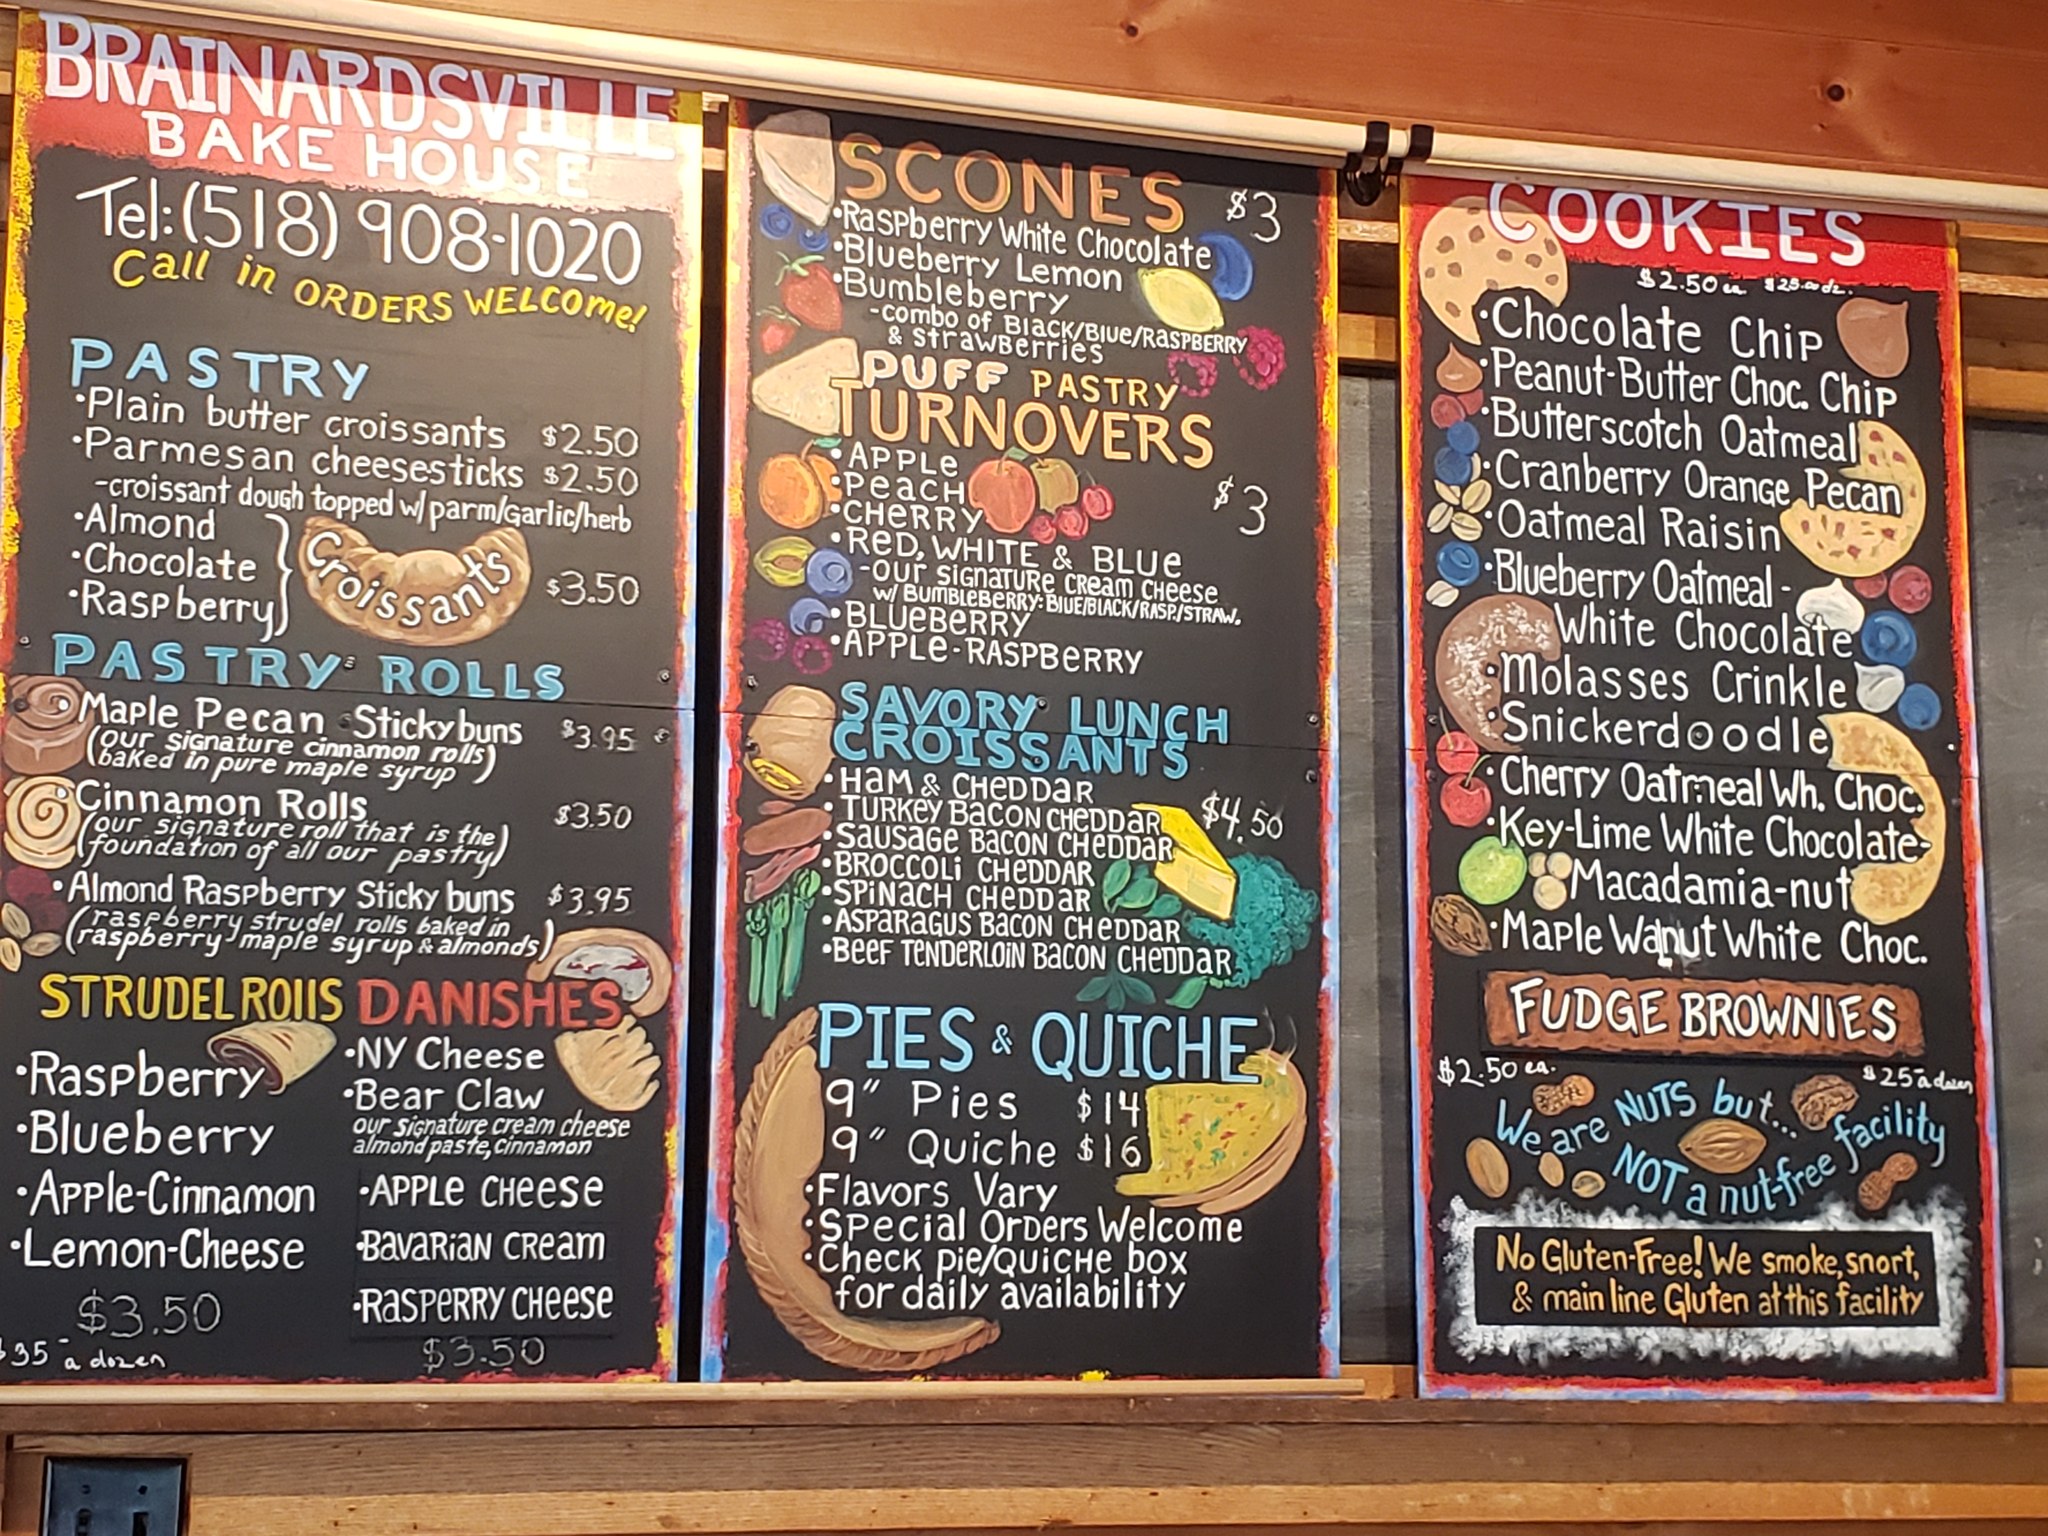 BRAINARDSVILLE
BAKE HOUSE
Tel:(518) 908-1020
Call in ORDERS WELCOME!
PASTRY
•Plain butter croissants $2.50
•Parmesan cheesesticks $2.50
-croissant dough topped w/parm/garlic/herb
•Almond
•Chocolate
•Raspberry
Croissants
$3.50
PASTRY ROLLS
•Maple Pecan Stickybuns $3.95
(our signature cinnamon rolls)
(baked in pure maple syrup)
•Cinnamon Rolls $3.50
(our signature roll that is the)
(foundation of all our pastry)
•Almond Raspberry Sticky buns $3.95
(raspberry strudel rolls baked in
raspberry maple syrup & almonds)
STRUDEL ROllS
•Raspberry
•Blueberry
•Apple-Cinnamon
•Lemon-Cheese
$3.50
$35- a dozen
DANISHES
•NY Cheese
•Bear Claw
our signature cream cheese
almond paste, cinnamon
•APPLE CHEESE
•BAVARIAN CREAM
•RASPERRY CHEESE
$3.50
SCONES $3
•Raspberry White Chocolate
•Blueberry Lemon
•Bumbleberry
-combo of Black/Blue/Raspberry
& strawberries
PUFF PASTRY
TURNOVERS
•APPLE
•PEACH
•CHERRY
$3
•RED, WHITE & BLUE
-OUR SIGNATURE CREAM CHEESE
W/ BUMBLEBERRY: BLUE/BLACK/RASP./STRAW.
•BLUEBERRY
•APPLE-RASPBERRY
SAVORY LUNCH
CROISSANTS
•HAM & CHEDDAR
•TURKEY BACON CHEDDAR $4.50
•SAUSAGE BACON CHEDDAR
•BROCCOLI CHEDDAR
•SPINACH CHEDDAR
•ASPARAGUS BACON CHEDDAR
•BEEF TENDERLOIN BACON CHEDDAR
PIES & QUICHE
9" Pies $14
9" Quiche $16
•Flavors Vary
•Special Orders Welcome
•Check pie/Quiche box
for daily availability
COOKIES
$2.50 ea. $25.00 dz.
•Chocolate Chip
•Peanut-Butter Choc. Chip
•Butterscotch Oatmeal
•Cranberry Orange Pecan
•Oatmeal Raisin
•Blueberry Oatmeal-
White Chocolate
•Molasses Crinkle
•Snickerdoodle
•Cherry Oatmeal Wh. Choc.
•Key-Lime White Chocolate-
Macadamia-nut
•Maple Walnut White Choc.
FUDGE BROWNIES
$2.50 ea. $25- a dozen
We are NUTS but...
NOT a nut-free facility
No Gluten-Free! We smoke, snort,
& main line Gluten at this facility